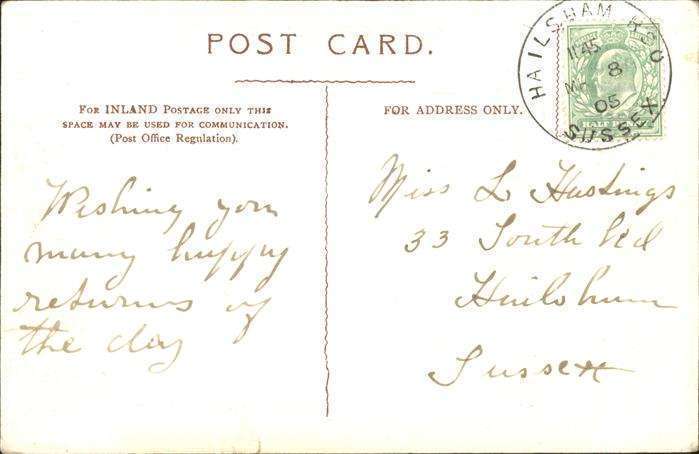 POST CARD.
FOR INLAND POSTAGE ONLY THIS
SPACE MAY BE USED FOR COMMUNICATION.
(Post Office Regulation).
FOR ADDRESS ONLY.
HAILSHAM R.S.O
11 45
8
05
SUSSEX
HALF PENNY
Wishing you
many happy
returns of
the day
Miss L Hastings
33 South Rd
Hailsham
Sussex